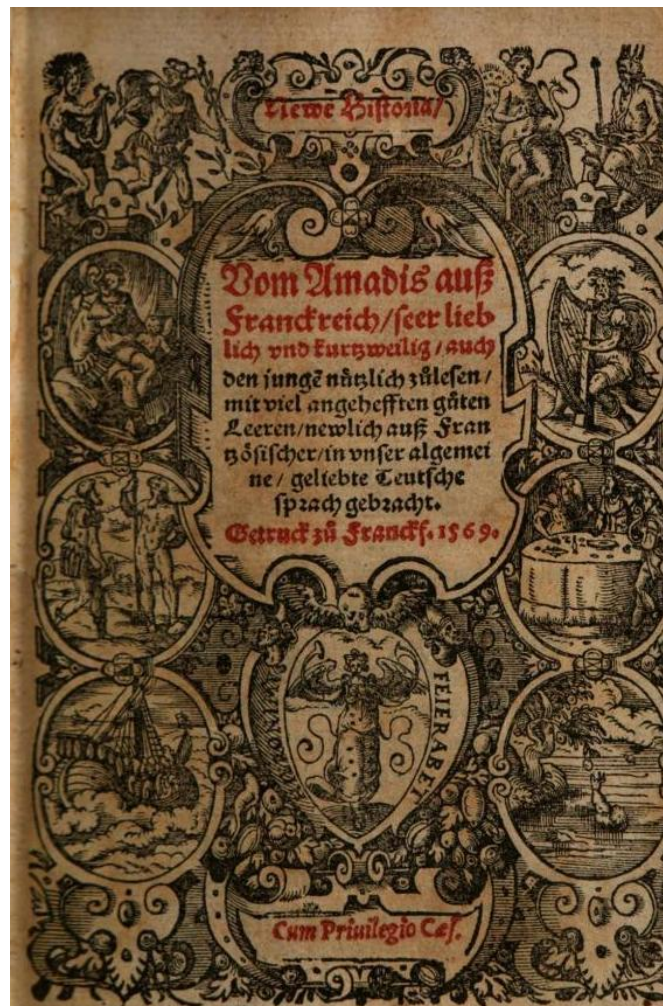 Newe Historia/
Vom Amadis auß
Franckreich/seer lieb
lich vnd kurtzweilig/auch
den jungẽ nützlich zůlesen/
mit viel angehefften gůten
Leeren/newlich auß Fran
tzösischer/in vnser algemei
ne/geliebte Teutsche
sprach gebracht.
Getruck zů Franckf. 1569.
SIGMVND
FEIERABET
Cum Priuilegio Cæs.